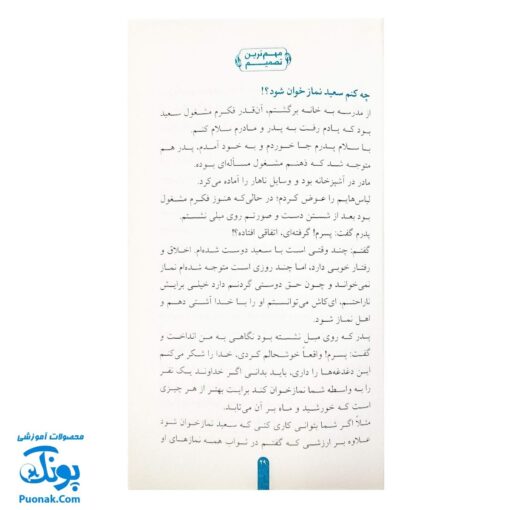 مهم‌ترین
تصمیم
چه کنم سعید نمازخوان شود؟!
از مدرسه به خانه برگشتم، آن‌قدر فکرم مشغول سعید
بود که یادم رفت به پدر و مادرم سلام کنم.
با سلام پدرم جا خوردم و به خود آمدم، پدر هم
متوجه شد که ذهنم مشغول مسأله‌ای بوده.
مادر در آشپزخانه بود و وسایل ناهار را آماده می‌کرد.
لباس‌هایم را عوض کردم؛ در حالی‌که هنوز فکرم مشغول
بود بعد از شستن دست و صورتم روی مبلی نشستم.
پدرم گفت: پسرم! گرفته‌ای، اتفاقی افتاده؟!
گفتم: چند وقتی است با سعید دوست شده‌ام. اخلاق و
رفتار خوبی دارد، اما چند روزی است متوجه شده‌ام نماز
نمی‌خواند و چون حق دوستی گردنم دارد خیلی برایش
ناراحتم، ای‌کاش می‌توانستم او را با خدا آشتی دهم و
اهل نماز شود.
پدر که روی مبل نشسته بود نگاهی به من انداخت و
گفت: پسرم! واقعاً خوشحالم کردی، خدا را شکر می‌کنم
این دغدغه‌ها را داری، باید بدانی اگر خداوند یک نفر
را به واسطه شما نمازخوان کند برایت بهتر از هر چیزی
است که خورشید و ماه بر آن می‌تابد.
مثلاً اگر شما بتوانی کاری کنی که سعید نمازخوان شود
علاوه بر ارزشی که گفتم در ثواب همه نمازهای او
۲۹
محصولات آموزشی
پونک
Puonak.Com